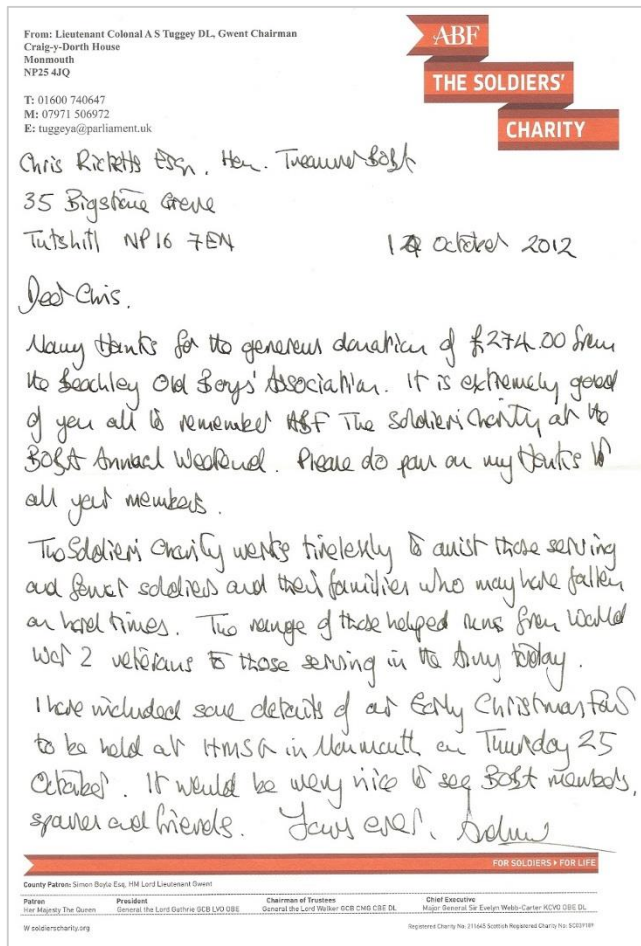 From: Lieutenant Colonal A S Tuggey DL, Gwent Chairman
Craig-y-Dorth House
Monmouth
NP25 4JQ
T: 01600 740647
M: 07971 506972
E: tuggeya@parliament.uk
ABF
THE SOLDIERS'
CHARITY
Chris Ricketts Esq. Hon. Treasurer BOBA
35 Bigstone Grove
Tutshill NP16 7EN
October 2012
Dear Chris.
Many thanks for the generous donation of £274.00 from
the Beachley Old Boys' Association. It is extremely good
of you all to remember ABF The Soldiers Charity at the
BOBA Annual Weekend. Please do pass on my thanks to
all your members.
The Soldiers Charity works tirelessly to assist those serving
and former soldiers and their families who may have fallen
on hard times. The range of those helped runs from World
War 2 veterans to those serving in the Army today.
I have included some details of our Early Christmas Fair
to be held at HMSG in Monmouth on Thursday 25
October. It would be very nice to see BOBA members,
spouses and friends. Yours ever,
FOR SOLDIERS FOR LIFE
County Patron: Simon Boyle Esq, HM Lord Lieutenant Gwent
Patron President Chairman of Trustees Chief Executive
Her Majesty The Queen General the Lord Guthrie GCB LVO OBE General the Lord Walker GCB CMG CBE DL Major General Sir Evelyn Webb-Carter KCVO OBE DL
W soldierscharity.org Registered Charity No: 211645 Scottish Registered Charity No: SC039189